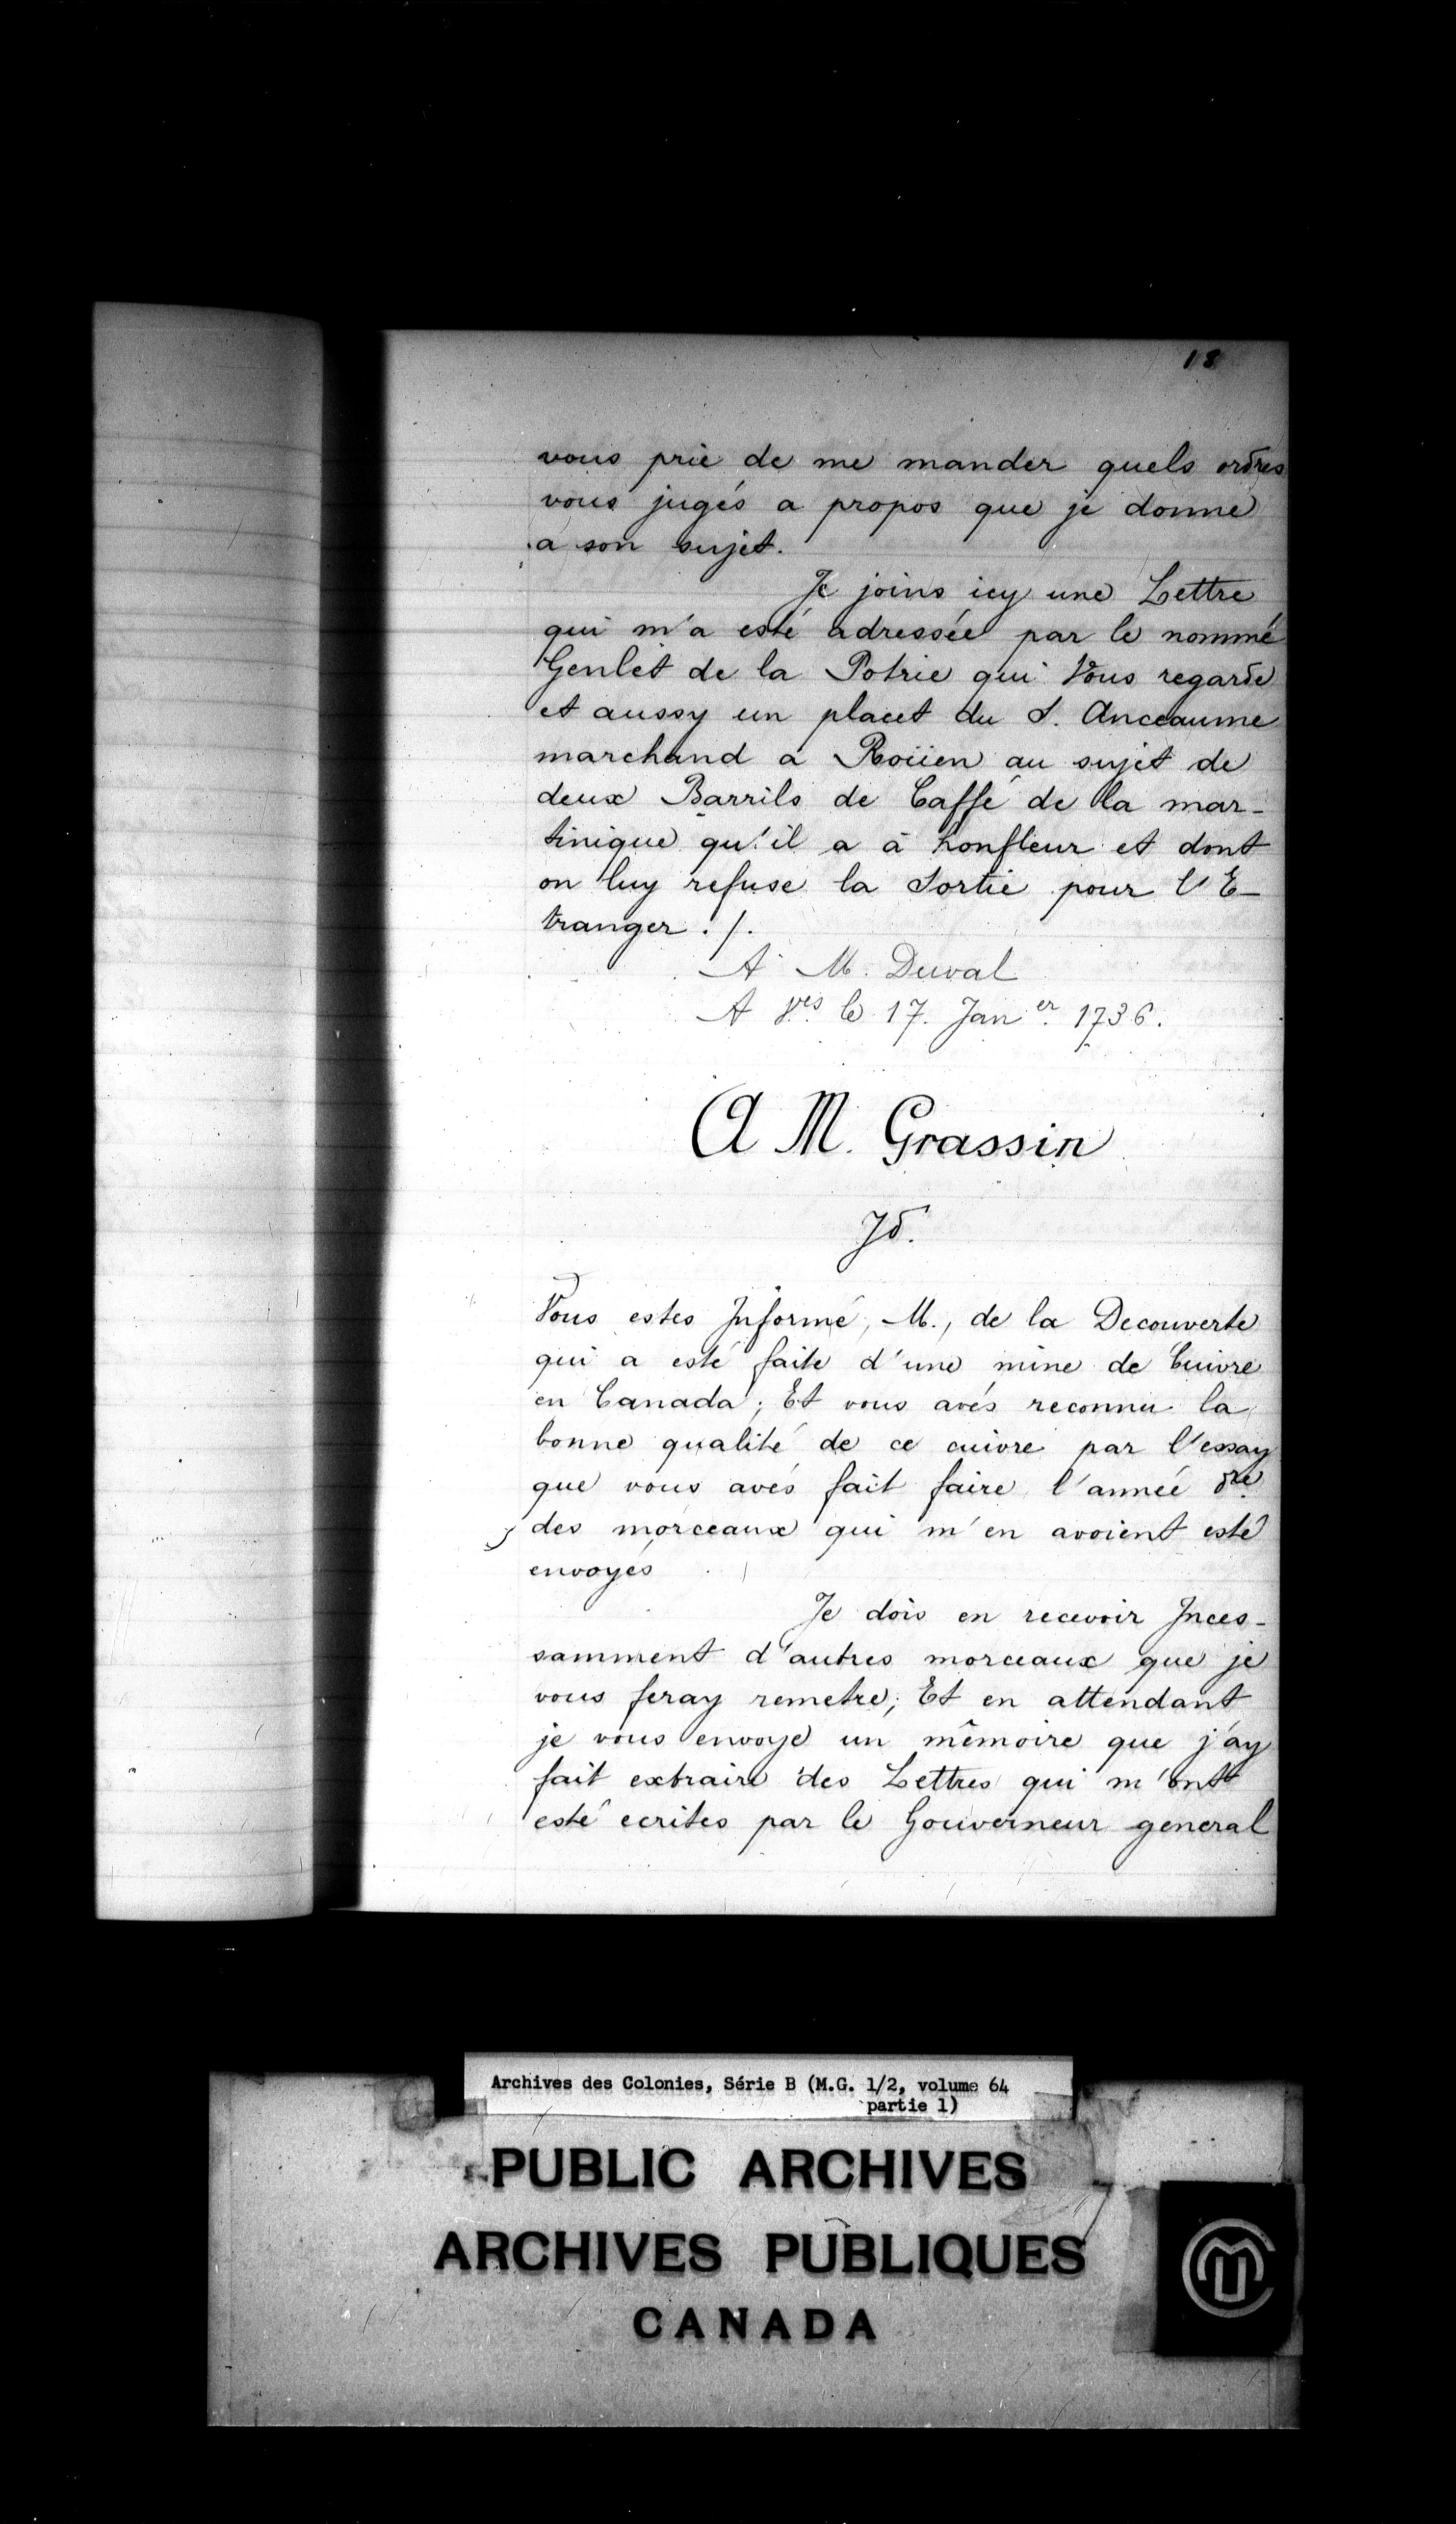 18
vous prie de me mander quels ordres
vous jugés a propos que je donne
a son sujet.
Je joins icy une Lettre
qui m'a esté adressée par le nommé
Genlet de la Potrie qui Vous regarde
et aussy un placet du S. Anceaume
marchand a Roüen au sujet de
deux Barrils de Caffé de la mar-
tinique qu'il a à honfleur et dont
on luy refuse la Sortie pour l'E-
tranger ./.
A M. Duval
A Ves le 17. Janer. 1736.
A M. Grassin
Jd.
Vous estes Informé, M., de la Decouverte
qui a esté faite d'une mine de Cuivre
en Canada; Et vous avés reconnu la
bonne qualité de ce cuivre par l'essay
que vous avés fait faire l'année dre
des morceaux qui m'en avoient esté
envoyés
Je dois en recevoir Inces-
samment d'autres morceaux que je
vous feray remetre; Et en attendant
je vous envoye un mémoire que j'ay
fait extraire des Lettres qui m'ont
esté ecrites par le Gouverneur general
Archives des Colonies, Série B (M.G. 1/2, volume 64
partie 1)
PUBLIC ARCHIVES
ARCHIVES PUBLIQUES
CANADA